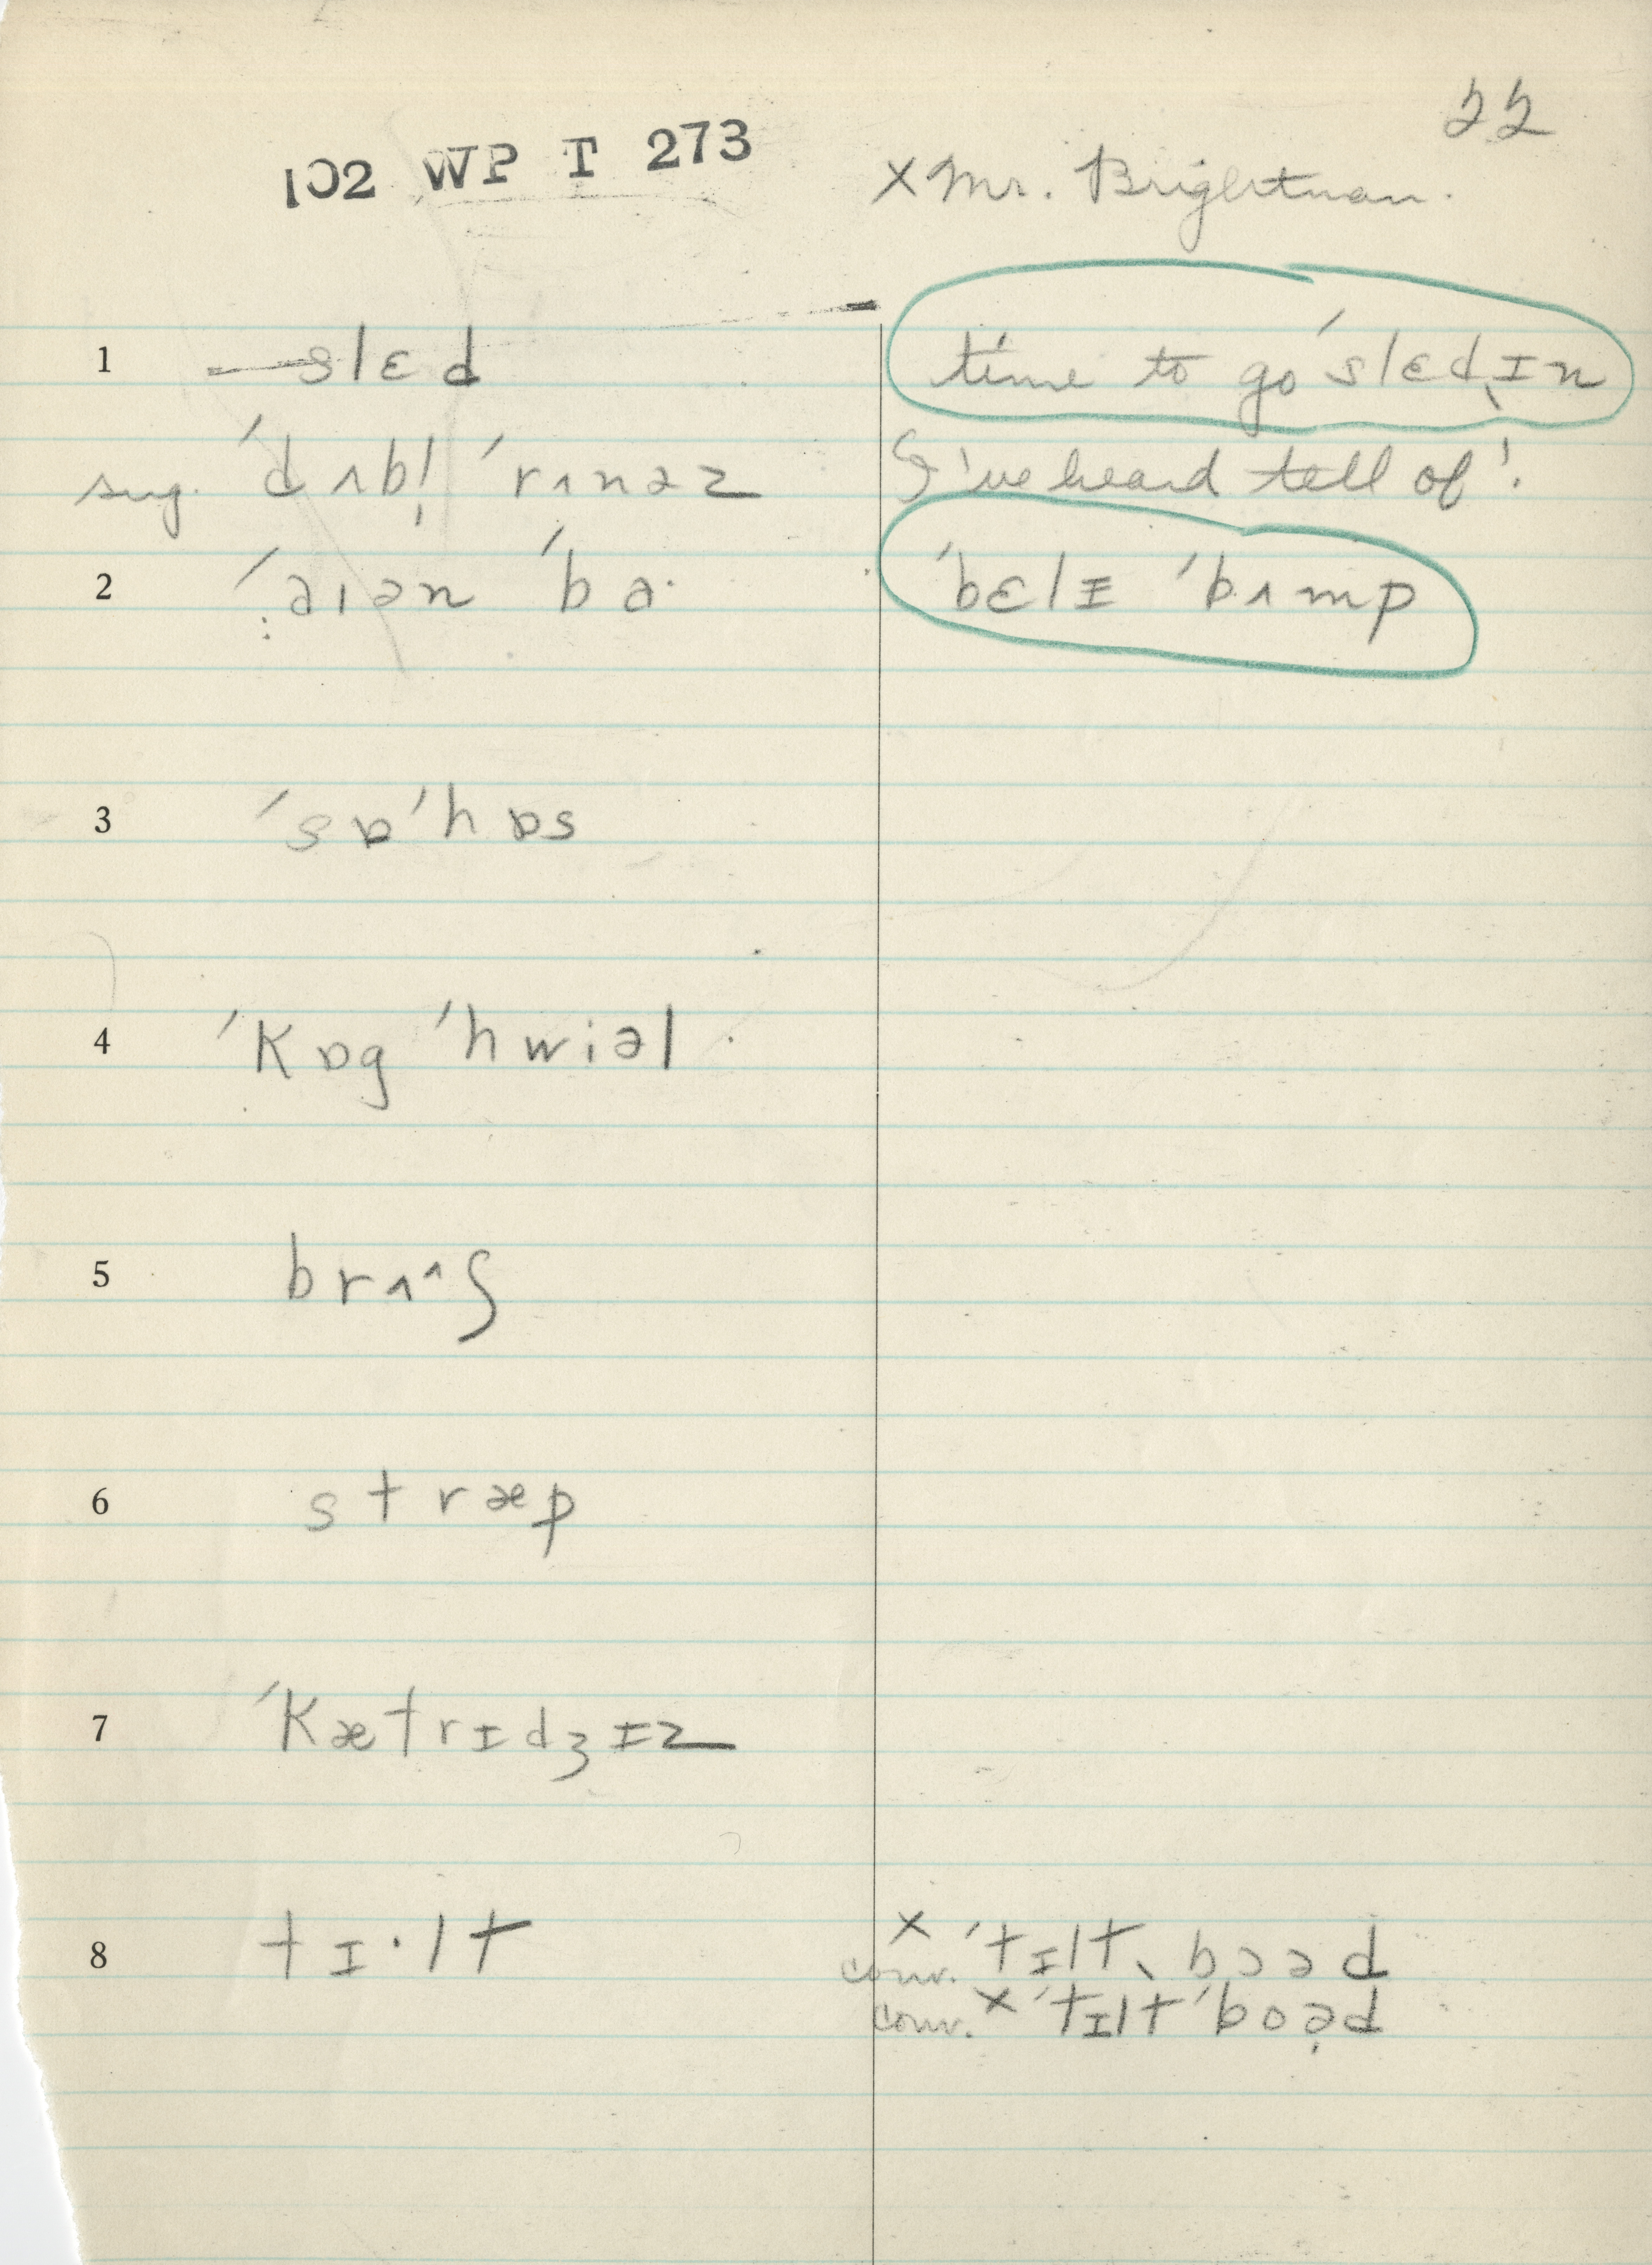 22
102 WP T 273
× Mr. Brightman.
1 —slɛd
time to go ˈslɛdˌɪn
sug. ˈdʌbl̩ ˈrʌnəz
I've heard tell of'.
2 ˈaɪən ˈba·
ˈbɛlɪ ˈbʌmp
3 ˈsɒˈhɒs
4 ˈkɒg ˈhwiəl
5 brʌ^ʃ
6 stræp
7 ˈkætrɪdʒɪz
8 tɪ·lt
× conv. ˈtɪltˌbɔəd
conv. × ˈtɪltˈboəd